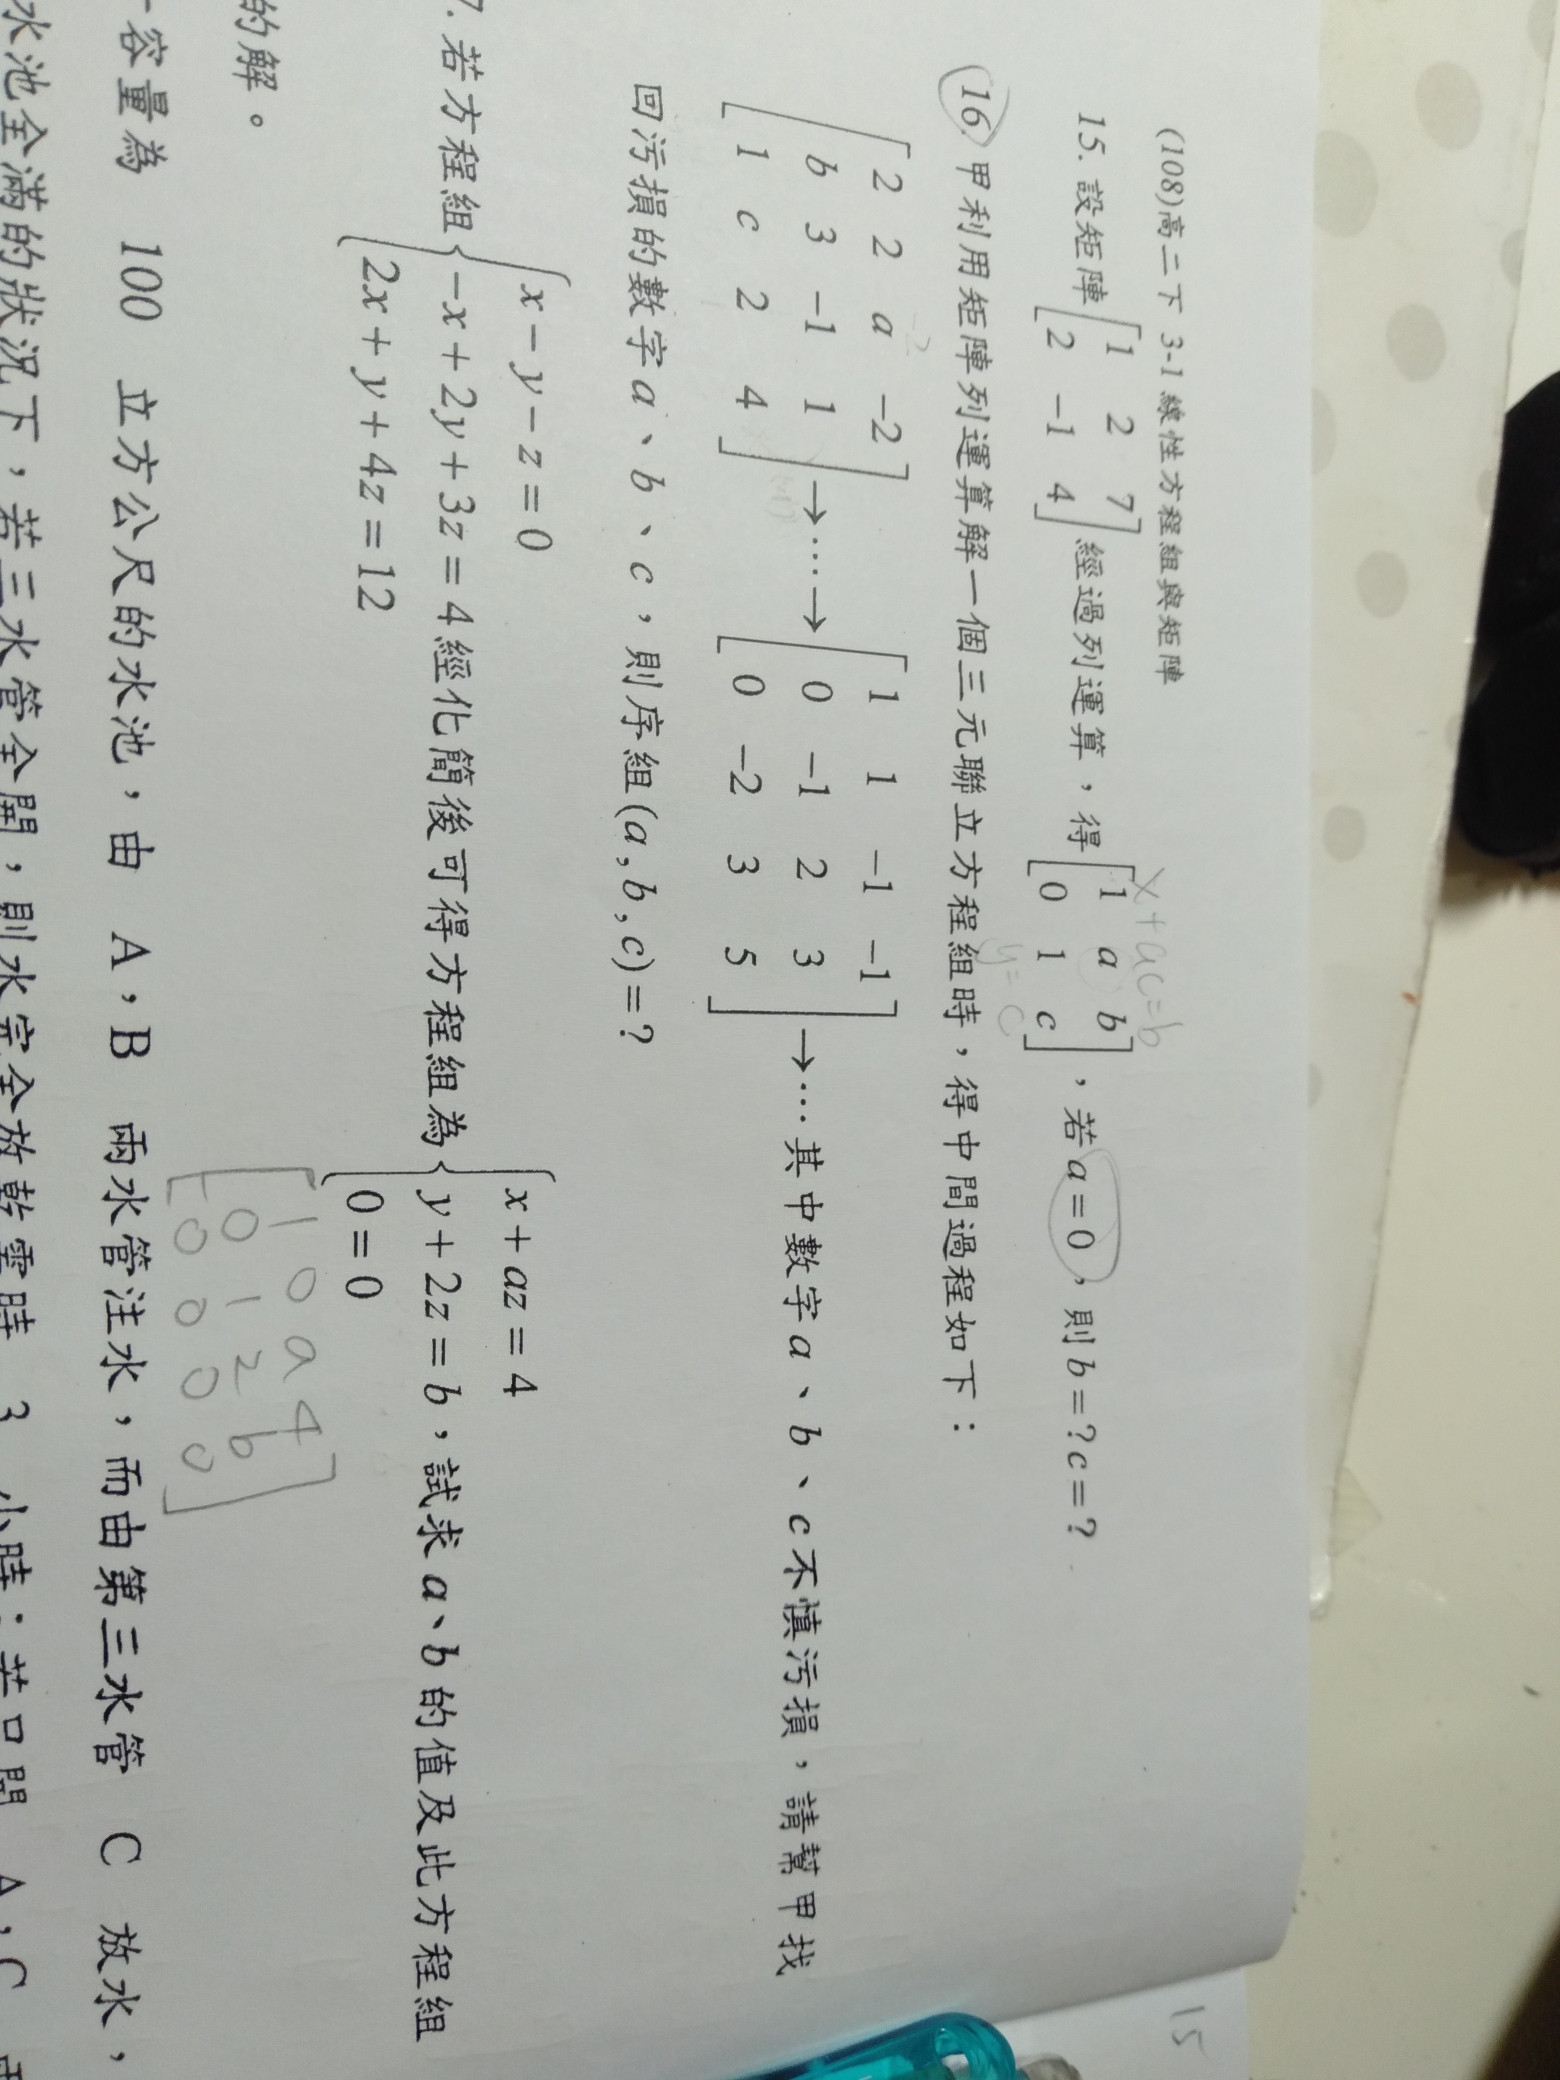 (108)高二下 3-1 線性方程組與矩陣
15. 設矩陣 [1 2 7
2 -1 4] 經過列運算，得 [1 a b
0 1 c]，若 a=0，則 b=? c=?
x+ac=b
y=c
16. 甲利用矩陣列運算解一個三元聯立方程組時，得中間過程如下：
[2 2 a -2
b 3 -1 1
1 c 2 4] →…→ [1 1 -1 -1
0 -1 2 3
0 -2 3 5] →… 其中數字 a、b、c 不慎污損，請幫甲找
回污損的數字 a、b、c，則序組(a,b,c)=?
7. 若方程組 {x-y-z=0
-x+2y+3z=4
2x+y+4z=12 經化簡後可得方程組為 {x+az=4
y+2z=b
0=0，試求 a、b 的值及此方程組
的解。
[1 0 a 4
0 1 2 b
0 0 0 0]
容量為 100 立方公尺的水池，由 A，B 兩水管注水，而由第三水管 C 放水，
水池全滿的狀況下，若三水管全開，則水完全放乾需時 3 小時；若只開 A，C
15